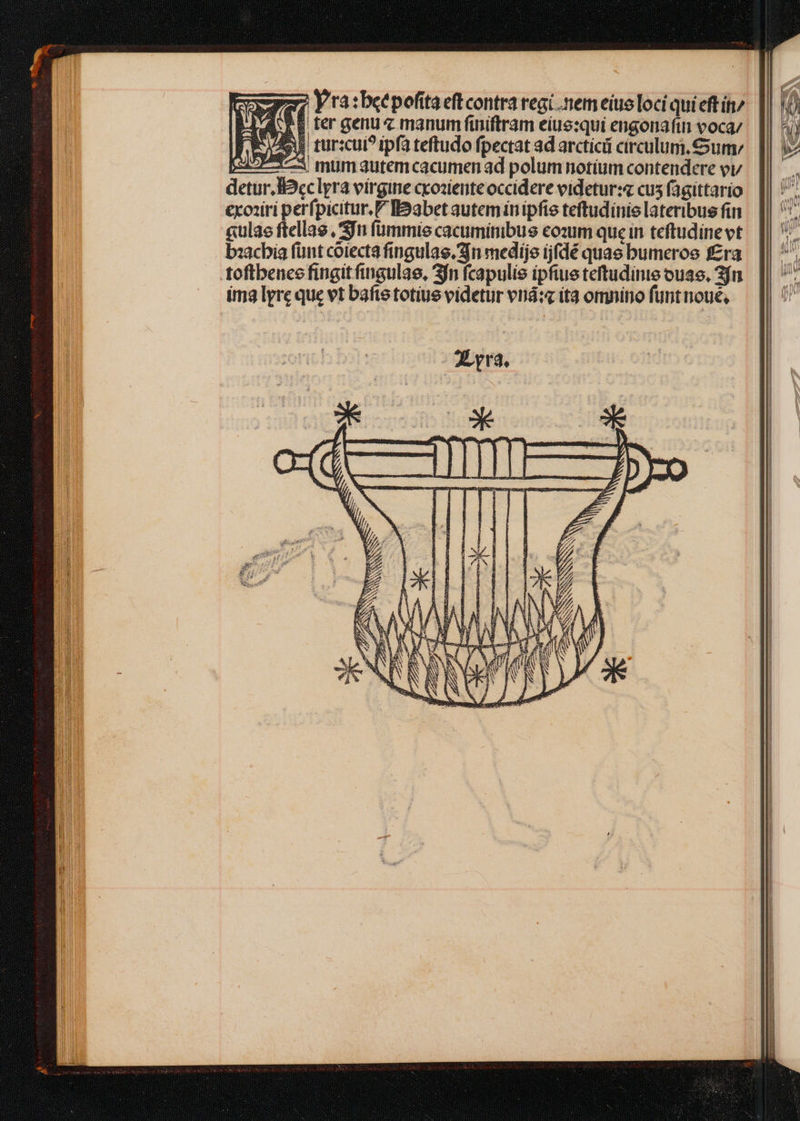 LYra:hęc posita est contra regi.nem eius loci qui est in/
ter genu ⁊ manum sinistram eius:qui engonasin voca/
tur:cui⁹ ipsa testudo spectat ad arcticū circulum.Sum/
mum autem cacumen ad polum notium contendere vi/
detur.Hęc lyra virgine exoꝛiente occidere videtur:⁊ cuꝫ sagittario
exoꝛiri perspicitur. Habet autem in ipsis testudinis lateribus sin
gulas stellas. In summis cacuminibus eoꝛum quę in testudine vt
bꝛachia sunt cōiecta singulas. In medijs ijsdē quas humeros Era
tosthenes fingit singulas. In scapulis ipsius testudinis duas. In
ima lyrę que vt basis totius videtur vnā:⁊ ita omnino sunt nouē.
Lyra.